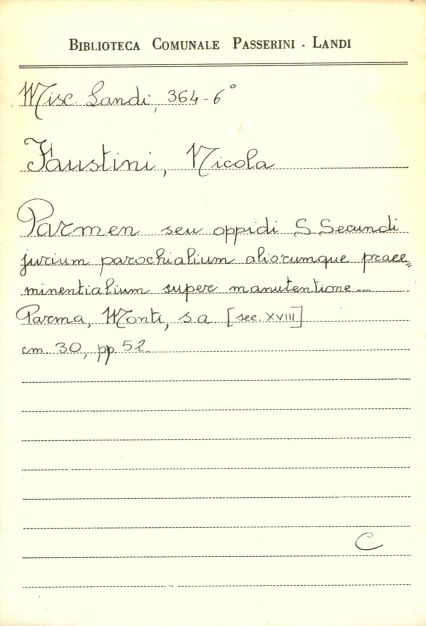 BIBLIOTECA COMUNALE PASSERINI - LANDI
Misc Landi, 364-6°
Faustini, Nicola
Parmen seu oppidi S. Secundi
jurium parochialium aliorumque praee=
minentialium super manutentione...
Parma, Monti, s a [sec. XVIII]
cm. 30, pp. 52
C